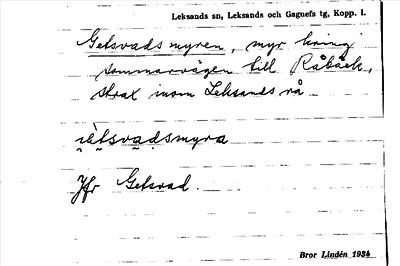 Leksands sn, Leksands och Gagnefs tg, Kopp. l.
Getsvadsmyren, myr kring
sommarvägen till Råbäck,
strax inom Leksands rå
Jfr Getsvad.
Bror Lindén 1934